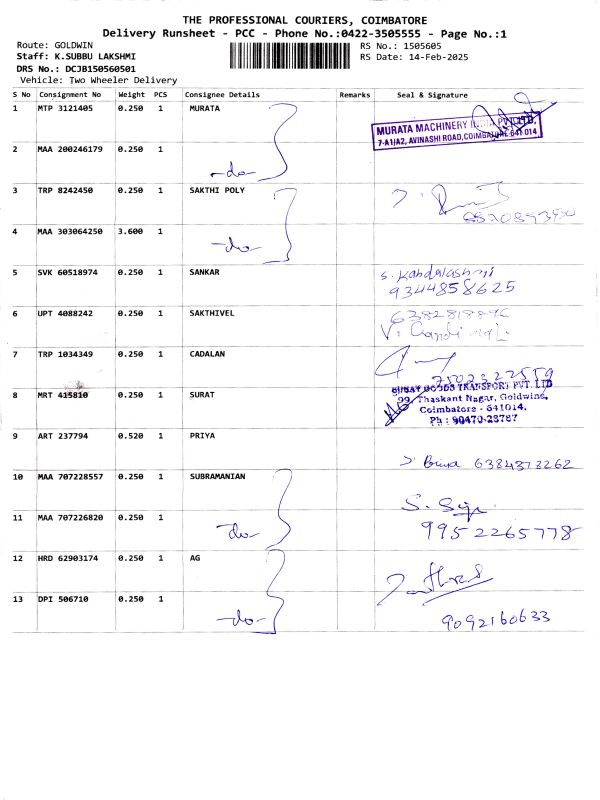 THE PROFESSIONAL COURIERS, COIMBATORE
Delivery Runsheet - PCC - Phone No.:0422-3505555 - Page No.:1
Route: GOLDWIN RS No.: 1505605
Staff: K.SUBBU LAKSHMI RS Date: 14-Feb-2025
DRS No.: DCJB150560501
Vehicle: Two Wheeler Delivery
S No Consignment No Weight PCS Consignee Details Remarks Seal & Signature
1 MTP 3121405 0.250 1 MURATA
MURATA MACHINERY INDIA PVT. LTD.
7-A1/A2, AVINASHI ROAD, COIMBATORE-641 014.
2 MAA 200246179 0.250 1
-do-
3 TRP 8242450 0.250 1 SAKTHI POLY
4 MAA 303064250 3.600 1
-do-
5 SVK 60518974 0.250 1 SANKAR
9344858625
6 UPT 4088242 0.250 1 SAKTHIVEL
7 TRP 1034349 0.250 1 CADALAN
8 MRT 415810 0.250 1 SURAT
SURAT GOODS TRANSPORT PVT. LTD
99, Thaskant Nagar, Goldwins,
Coimbatore - 641014.
Ph : 90470-23787
9 ART 237794 0.520 1 PRIYA
Priya 6384373262
10 MAA 707228557 0.250 1 SUBRAMANIAN
11 MAA 707226820 0.250 1
-do- 9952265778
12 HRD 62903174 0.250 1 AG
13 DPI 506710 0.250 1
-do- 9092160633